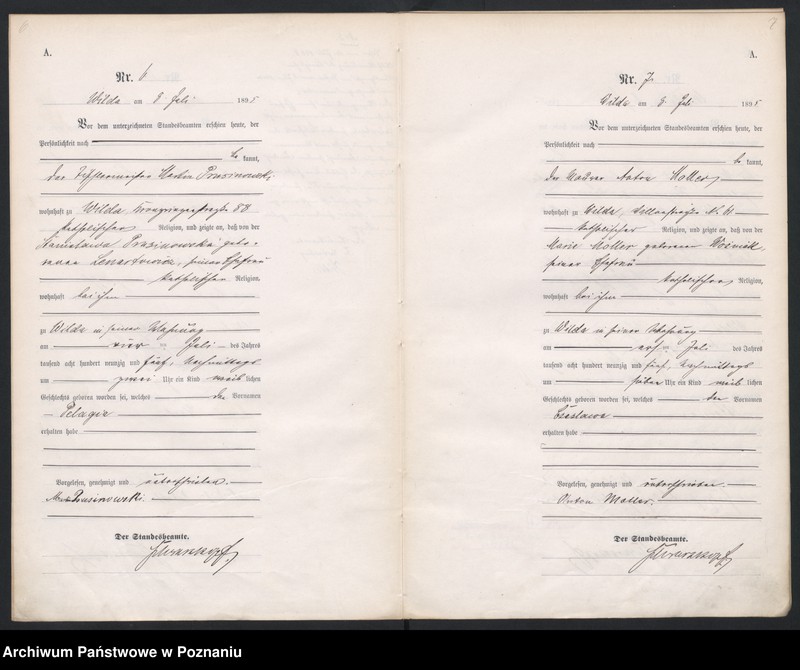 A.
Nr. 6
Wilda am 8 Juli 1895
Vor dem unterzeichneten Standesbeamten erschien heute, der
Persönlichkeit nach
be kannt,
der Tischlermeister Prusinowski
wohnhaft zu Wilda 88
katholischer Religion, und zeigte an, daß von der
Stanislawa Prusinowska gebo-
renen Lenartowicz, seiner Ehefrau
katholischer Religion,
wohnhaft bei ihm
zu Wilda in seiner Wohnung
am vier ten Juli des Jahres
tausend acht hundert neunzig und fünf, Nachmittags
um zwei Uhr ein Kind weib lichen
Geschlechts geboren worden sei, welches den Vornamen
Pelagia
erhalten habe
Vorgelesen, genehmigt und unterschrieben.
Prusinowski.
Der Standesbeamte.
A.
Nr. 7.
Wilda am 8 Juli 1895
Vor dem unterzeichneten Standesbeamten erschien heute, der
Persönlichkeit nach
be kannt,
der Maurer Anton Moller
wohnhaft zu Wilda,
katholischer Religion, und zeigte an, daß von der
Marie Moller geborenen
seiner Ehefrau
katholischer Religion,
wohnhaft bei ihm
zu Wilda in seiner Wohnung
am ersten Juli des Jahres
tausend acht hundert neunzig und fünf, Nachmittags
um sieben Uhr ein Kind weib lichen
Geschlechts geboren worden sei, welches den Vornamen
Czeslawa
erhalten habe
Vorgelesen, genehmigt und unterschrieben.
Anton Moller.
Der Standesbeamte.
Archiwum Państwowe w Poznaniu